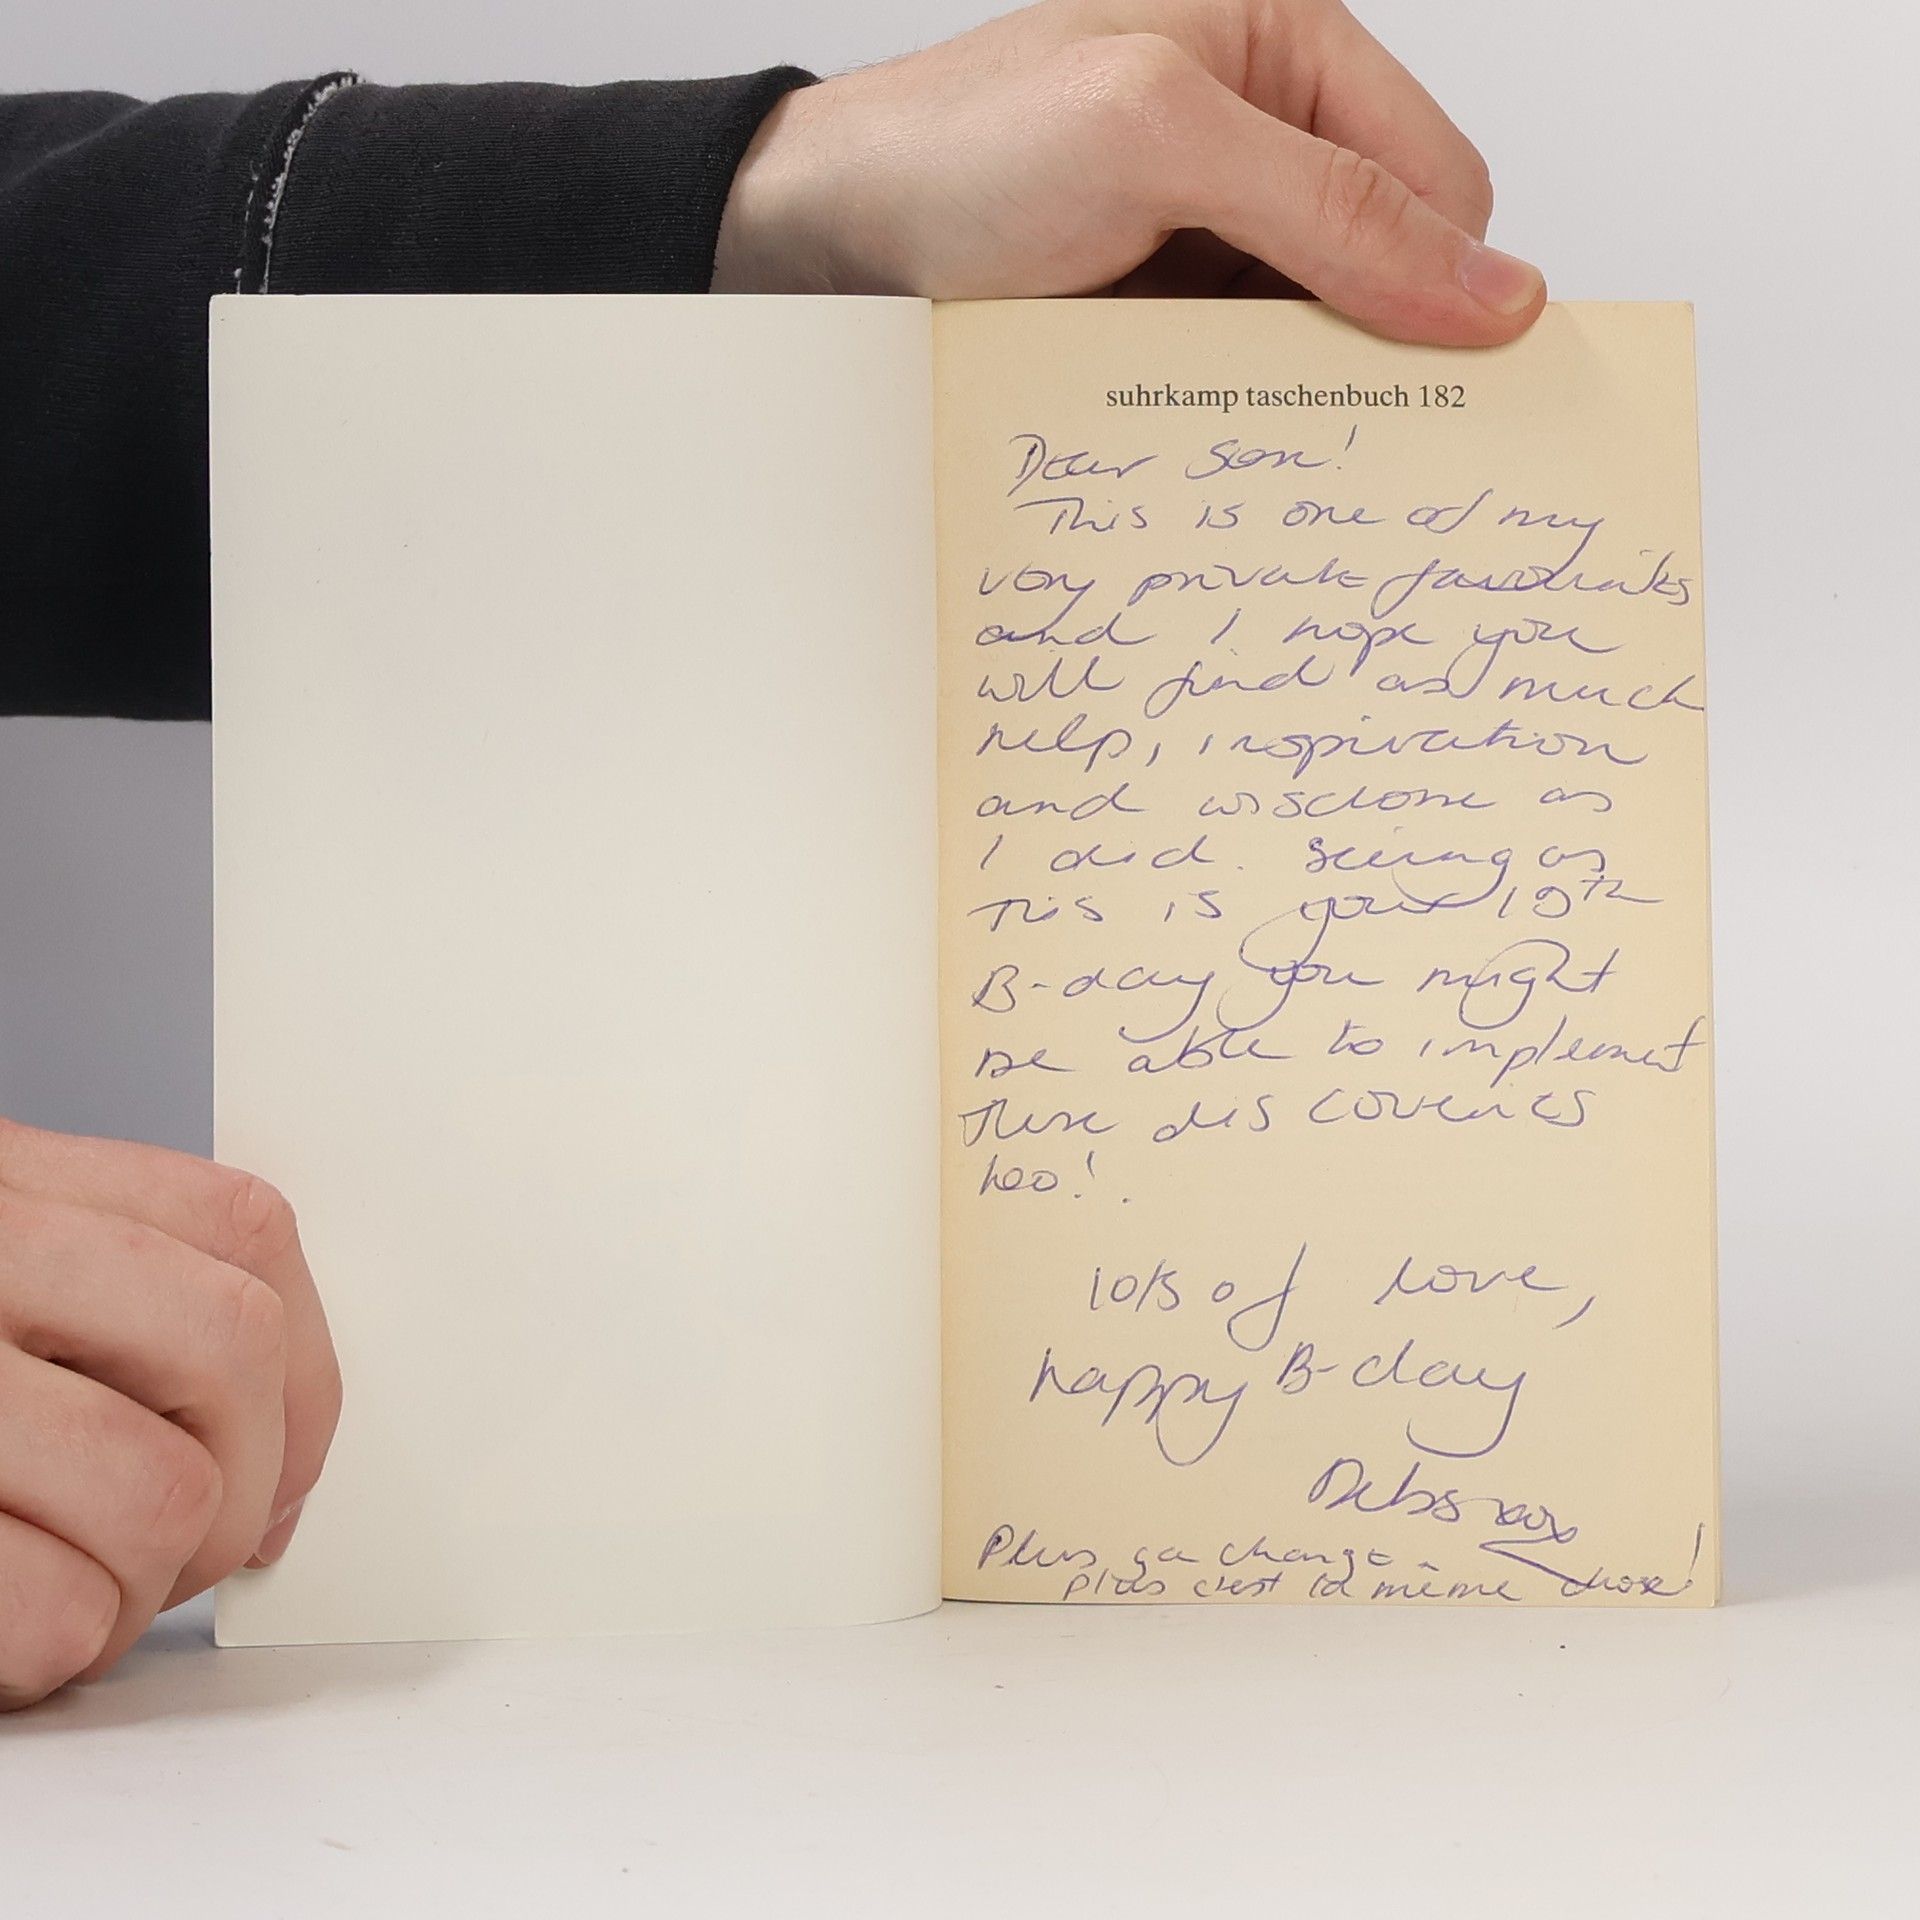 suhrkamp taschenbuch 182
Dear Son!
This is one of my
very private favourites
and I hope you
will find as much
help, inspiration
and wisdome as
I did. Seeing as
This is your
B-day you might
be able to implement
These discoveries
too!.
lots of love,
happy B-day
Debs xxx
Plus ça change
plus c'est la même chose!